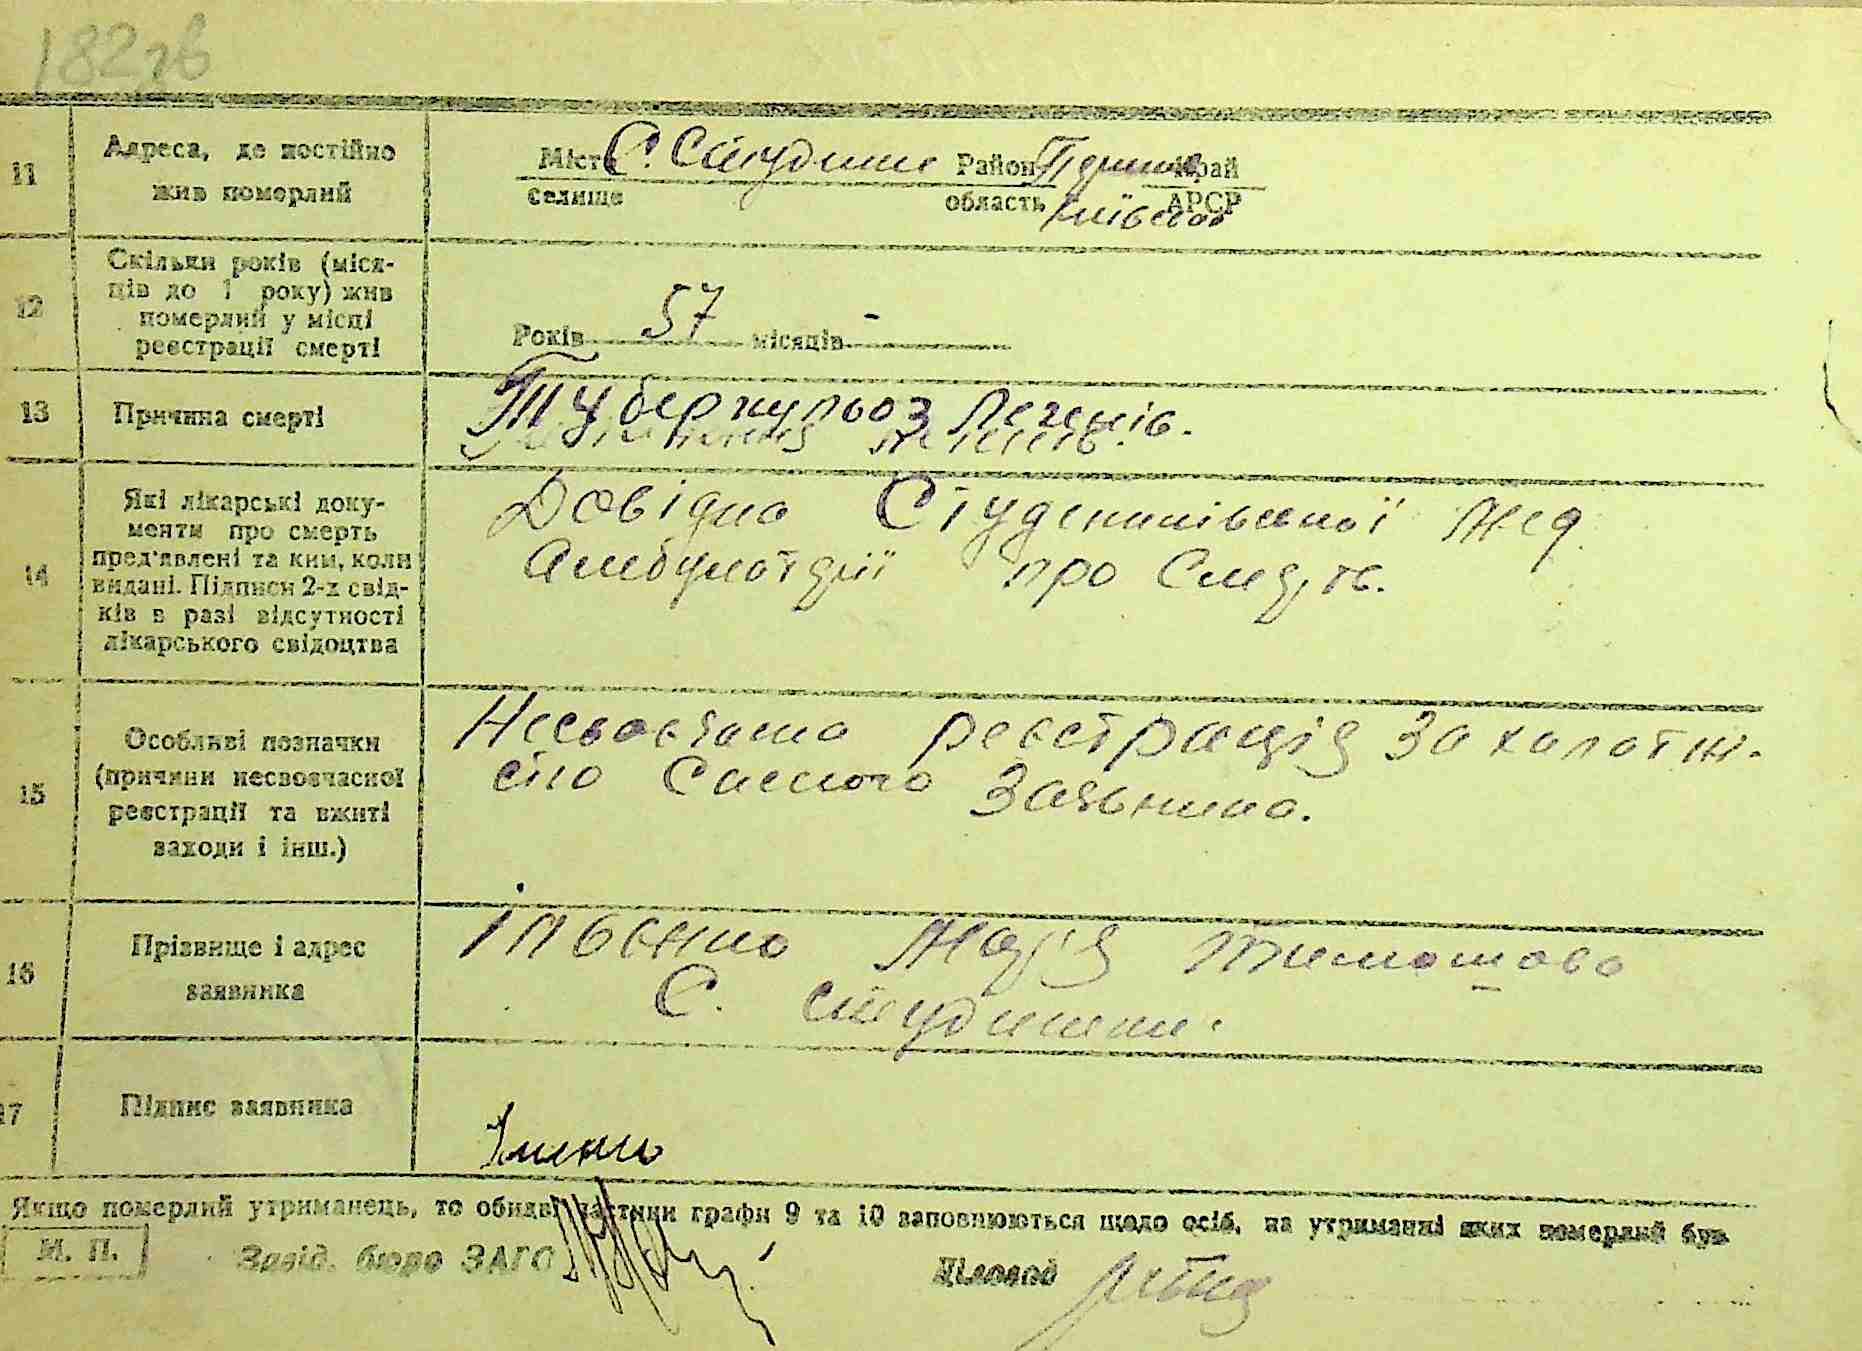 182зв
11 Адреса, де постійно жив померлий
Місто С. Студинне Район Край
селище область Київська АРСР
12 Скільки років (міся-
ців до 1 року) жив
померлий у місці
реєстрації смерті
Років 57 місяців -
13 Причина смерті Туберкульоз Легенів.
14 Які лікарські доку-
менти про смерть
пред'явлені та ким, коли
видані. Підписи 2-х свід-
ків в разі відсутності
лікарського свідоцтва
Довідка Студениківської Мед.
Амбулаторії про Смерть.
15 Особливі позначки
(причини несвоєчасної
реєстрації та вжиті
заходи і інш.)
реєстрація За халатні-
стю Самого Заявника.
16 Прізвище і адрес
заявника
Ільєнко Марія Тимошова
С.
17 Підпис заявника
Якщо померлий утриманець, то обидві частини графи 9 та 10 заповнюються щодо осіб, на утриманні яких померлий був
М. П. Завід. бюро ЗАГС Діловод